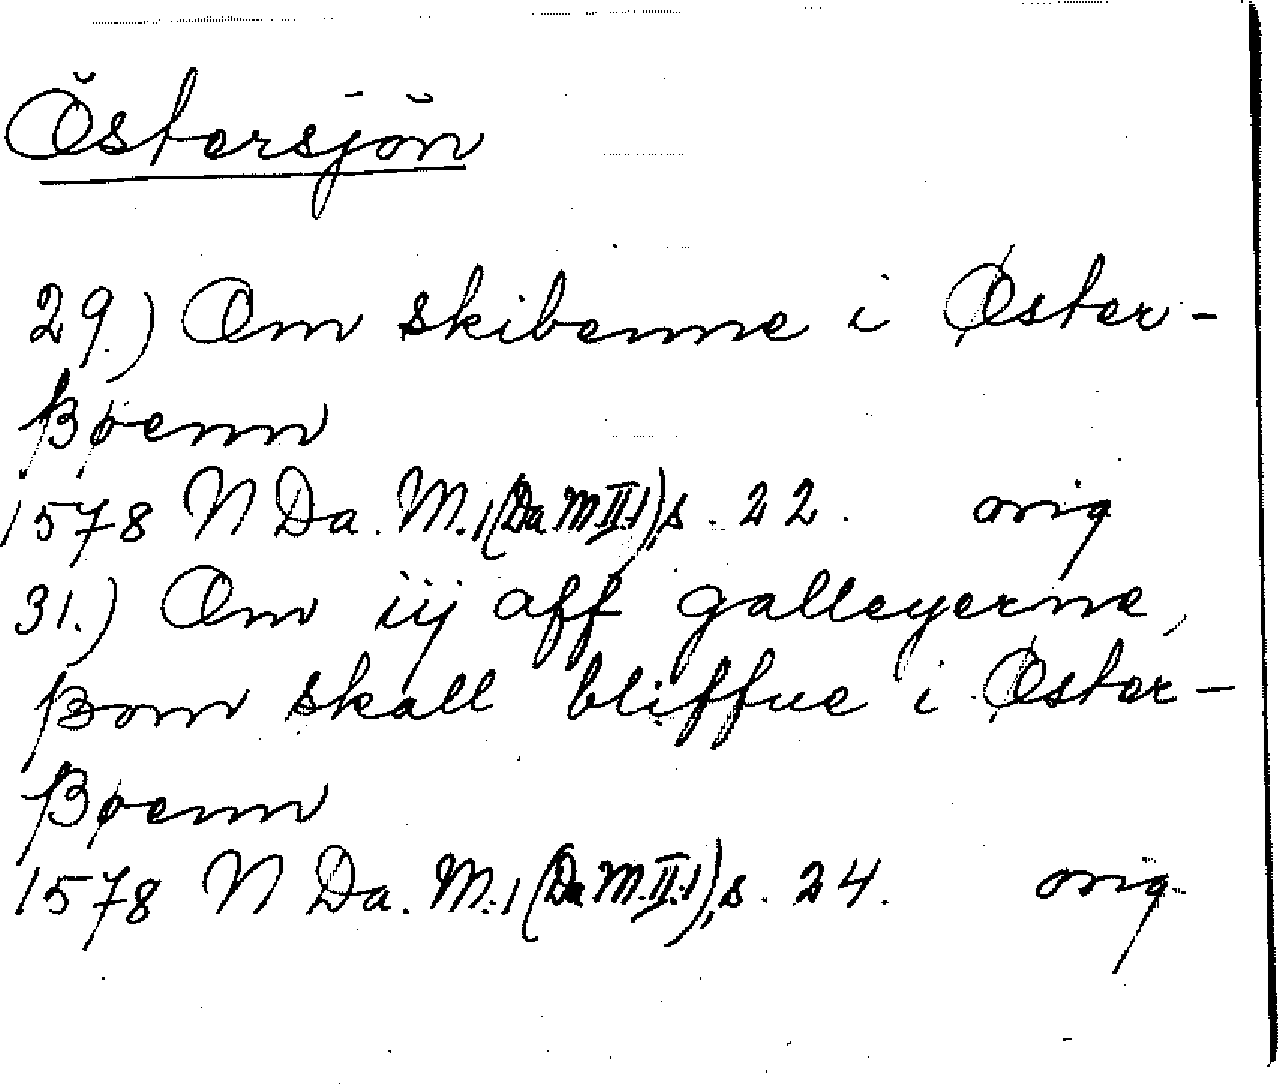 Östersjön
29.) Om skibenne i Øster-
ßøenn
1578 N Da. M. 1 (Da M II:1), s. 22. orig
31.) Om iij aff galleyerne,
ßom skall bliffue i Øster-
ßøenn
1578 N Da. M. 1 (Da M. II:1), s. 24. orig.